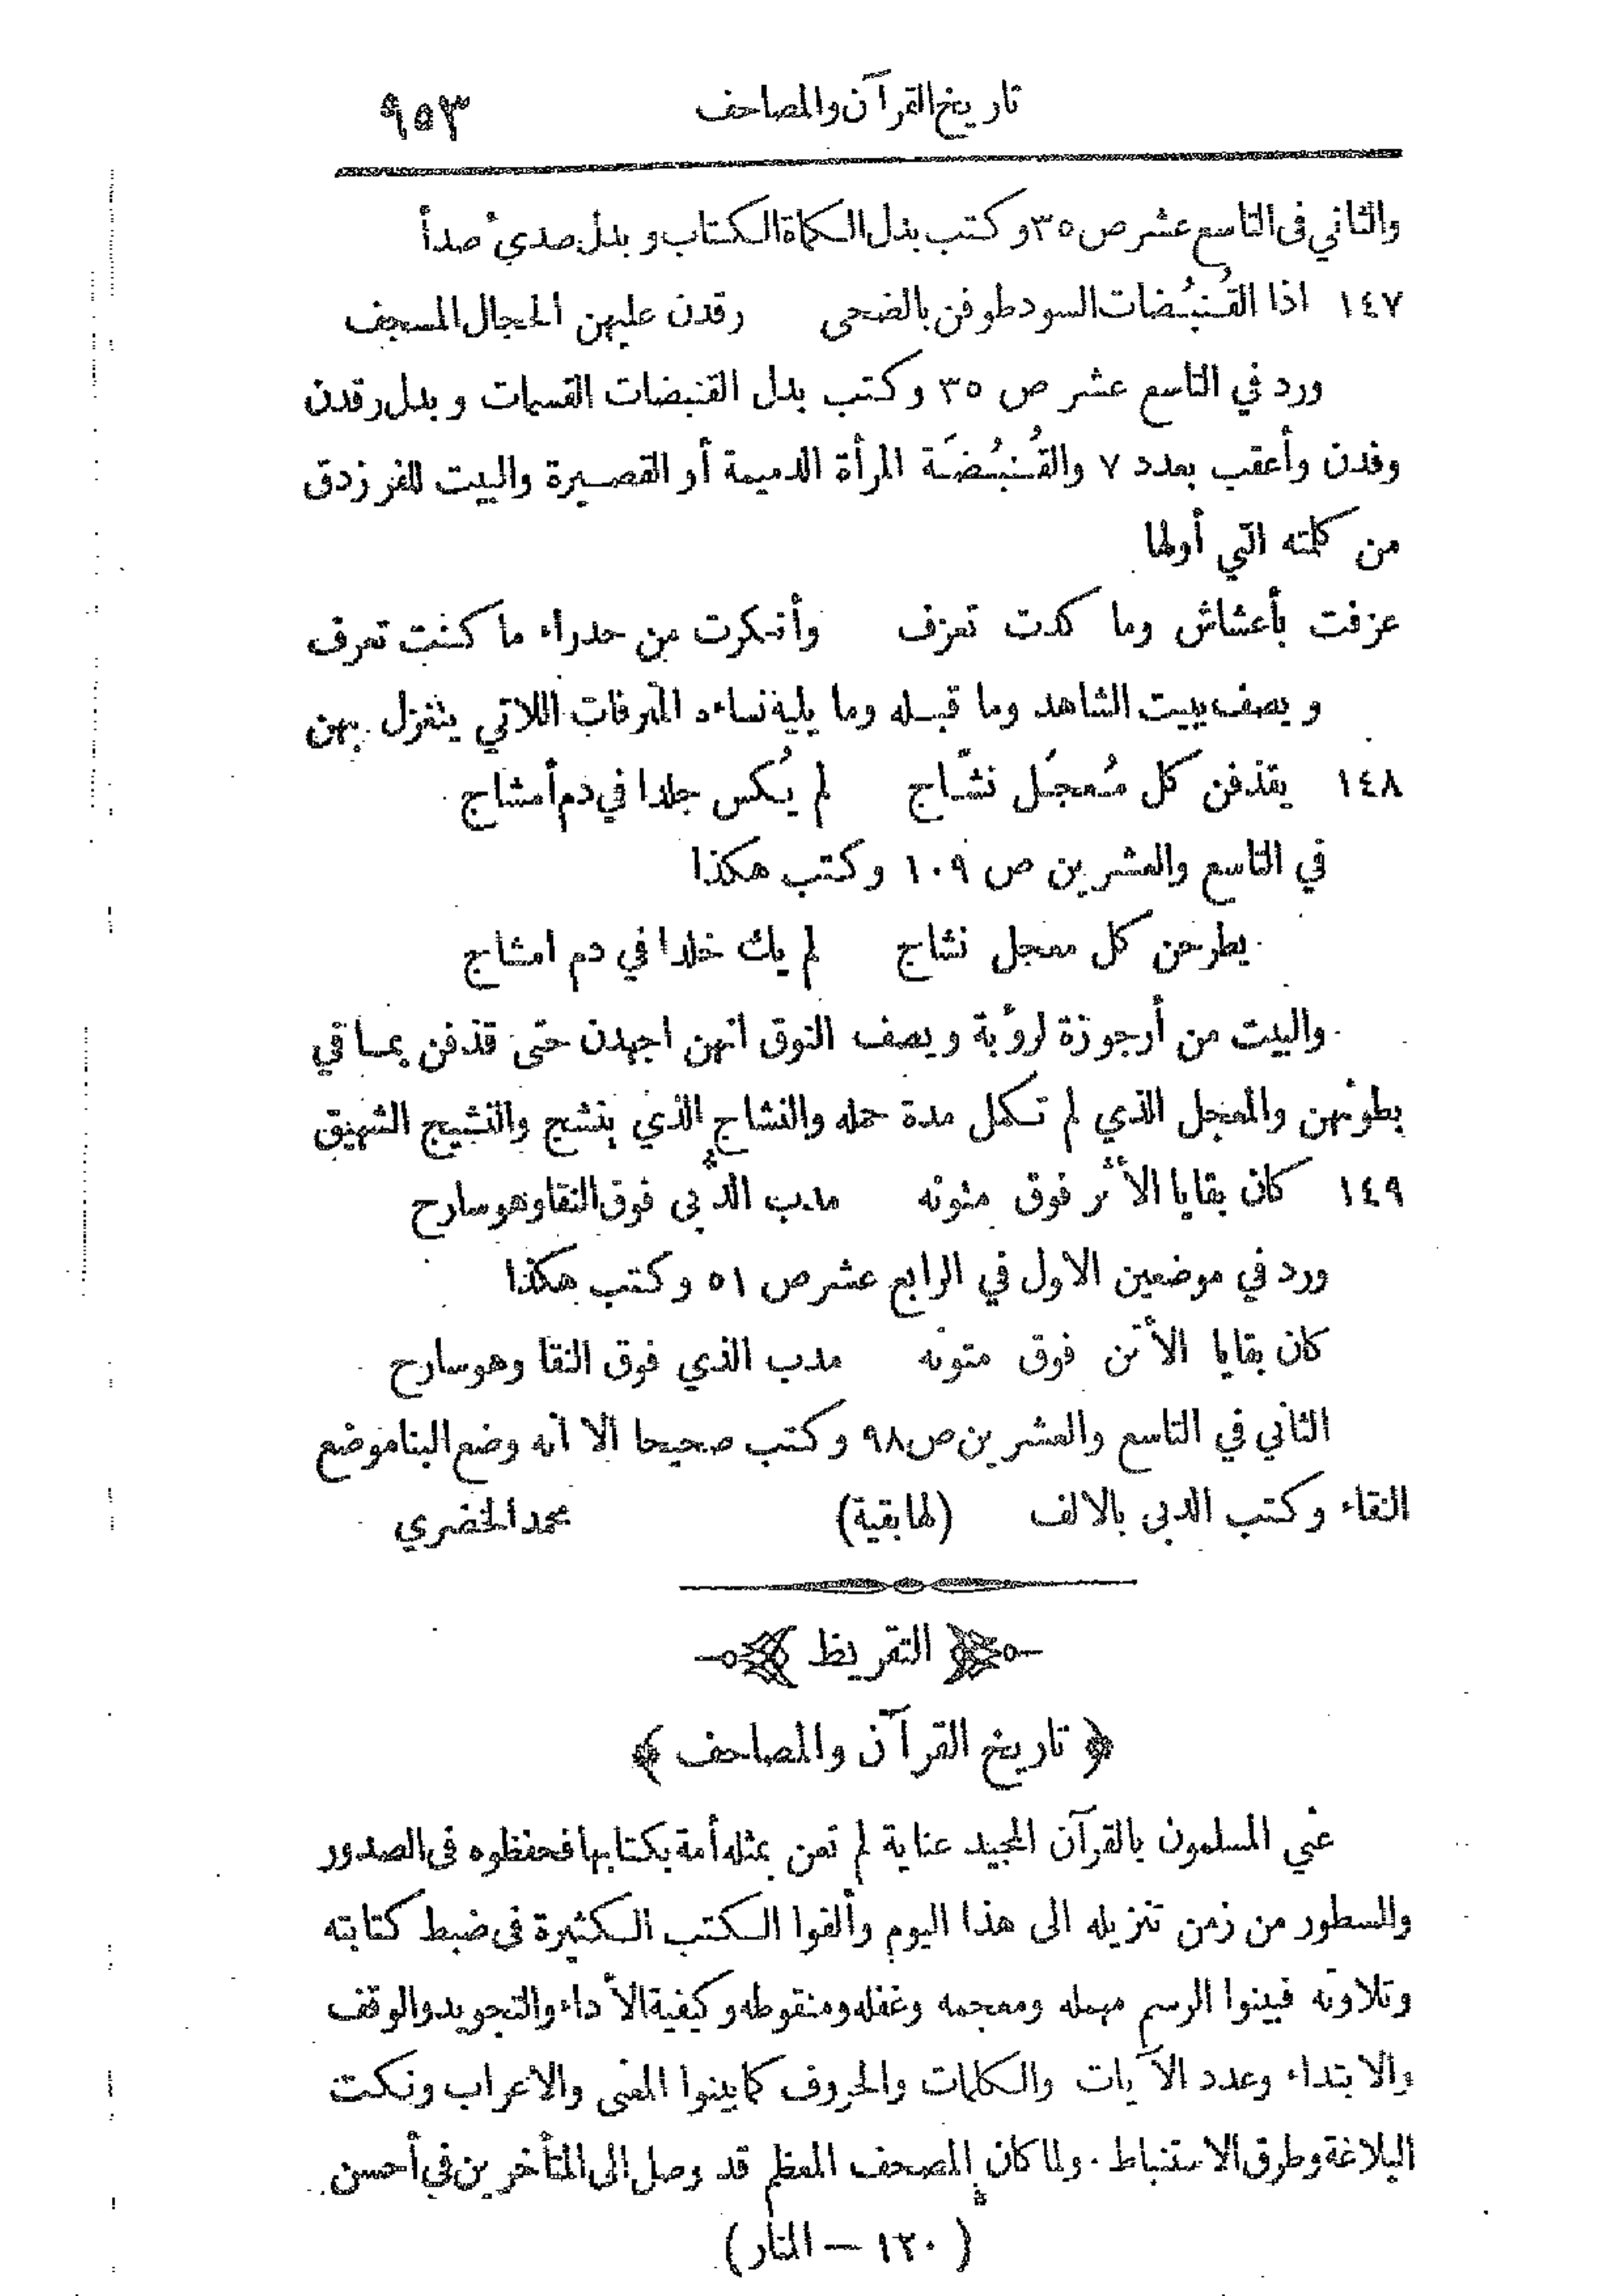 تاريخ القرآن والمصاحف ٩٥٣
والثاني في التاسع عشر ص ٣٥ وكتب بدل الكماة الكتاب وبدل صديء صدأ
١٤٧ اذا القُنبُضات السود طوفن بالضحى رقدن عليهن الحجال المسجف
ورد في التاسع عشر ص ٣٥ وكتب بدل القنبضات القسمات وبدل رقدن
وفدن وأعقب بعدد ٧ والقُنبُضَة المرأة الدميمة أو القصيرة والبيت للفرزدق
من كلمته التي أولها
عزفت بأعشاش وما كدت تعزف وأنكرت من حدراء ما كنت تعرف
ويصف ببيت الشاهد وما قبله وما يليه نساءه المترفات اللاتي يتغزل بهن
١٤٨ يقذفن كل مُعجَل نشّاج لم يُكس جلدا في دم أمشاج
في التاسع والعشرين ص ١٠٩ وكتب هكذا
يطرحن كل معجل نشاج لم يك خلدا في دم امشاج
والبيت من أرجوزة لرؤبة ويصف النوق انهن اجهدن حتى قذفن بما في
بطونهن والمعجل الذي لم تكمل مدة حمله والنشاج الذي ينشج والنشيج الشهيق
١٤٩ كان بقايا الأثر فوق متونه مدب الدبى فوق النقا وهو سارح
ورد في موضعين الاول في الرابع عشر ص ٥١ وكتب هكذا
كان بقايا الأتن فوق متونه مدب الذي فوق النقا وهو سارح
الثاني في التاسع والعشرين ص ٩٨ وكتب صحيحا الا انه وضع البنا موضع
النقاء وكتب الدبى بالالف (لها بقية) محمد الخضري
التقريظ
﴿ تاريخ القرآن والمصاحف ﴾
عني المسلمون بالقرآن المجيد عناية لم تعن بمثله أمة بكتابها فحفظوه في الصدور
والسطور من زمن تنزيله الى هذا اليوم وألفوا الكتب الكثيرة في ضبط كتابته
وتلاوته فبينوا الرسم مهمله ومعجمه وغفله ومنقوطه وكيفية الأداء والتجويد والوقف
والابتداء وعدد الآيات والكلمات والحروف كما بينوا المعنى والاعراب ونكت
البلاغة وطرق الاستنباط . ولما كان المصحف المعظم قد وصل الى المتأخرين في أحسن
( ١٢٠ — المنار )